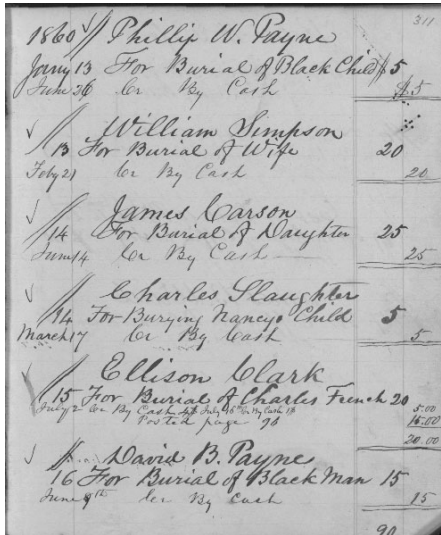 311
1860 Phillip W. Payne
Jany 13 For Burial of Black Child $5
June 26 Cr By Cash $5
William Simpson
13 For Burial of Wife 20
Feby 21 Cr By Cash 20
James Carson
14 For Burial of Daughter 25
June 14 Cr By Cash 25
Charles Slaughter
14 For Burying Nancys Child 5
March 17 Cr By Cash 5
Ellison Clark
15 For Burial of Charles French 20
July 2 Cr By Cash July 16th Cr By Cash 5.00
Posted page 90 15.00
20.00
David B. Payne
16 For Burial of Black Man 15
June 9th Cr By Cash 15
90